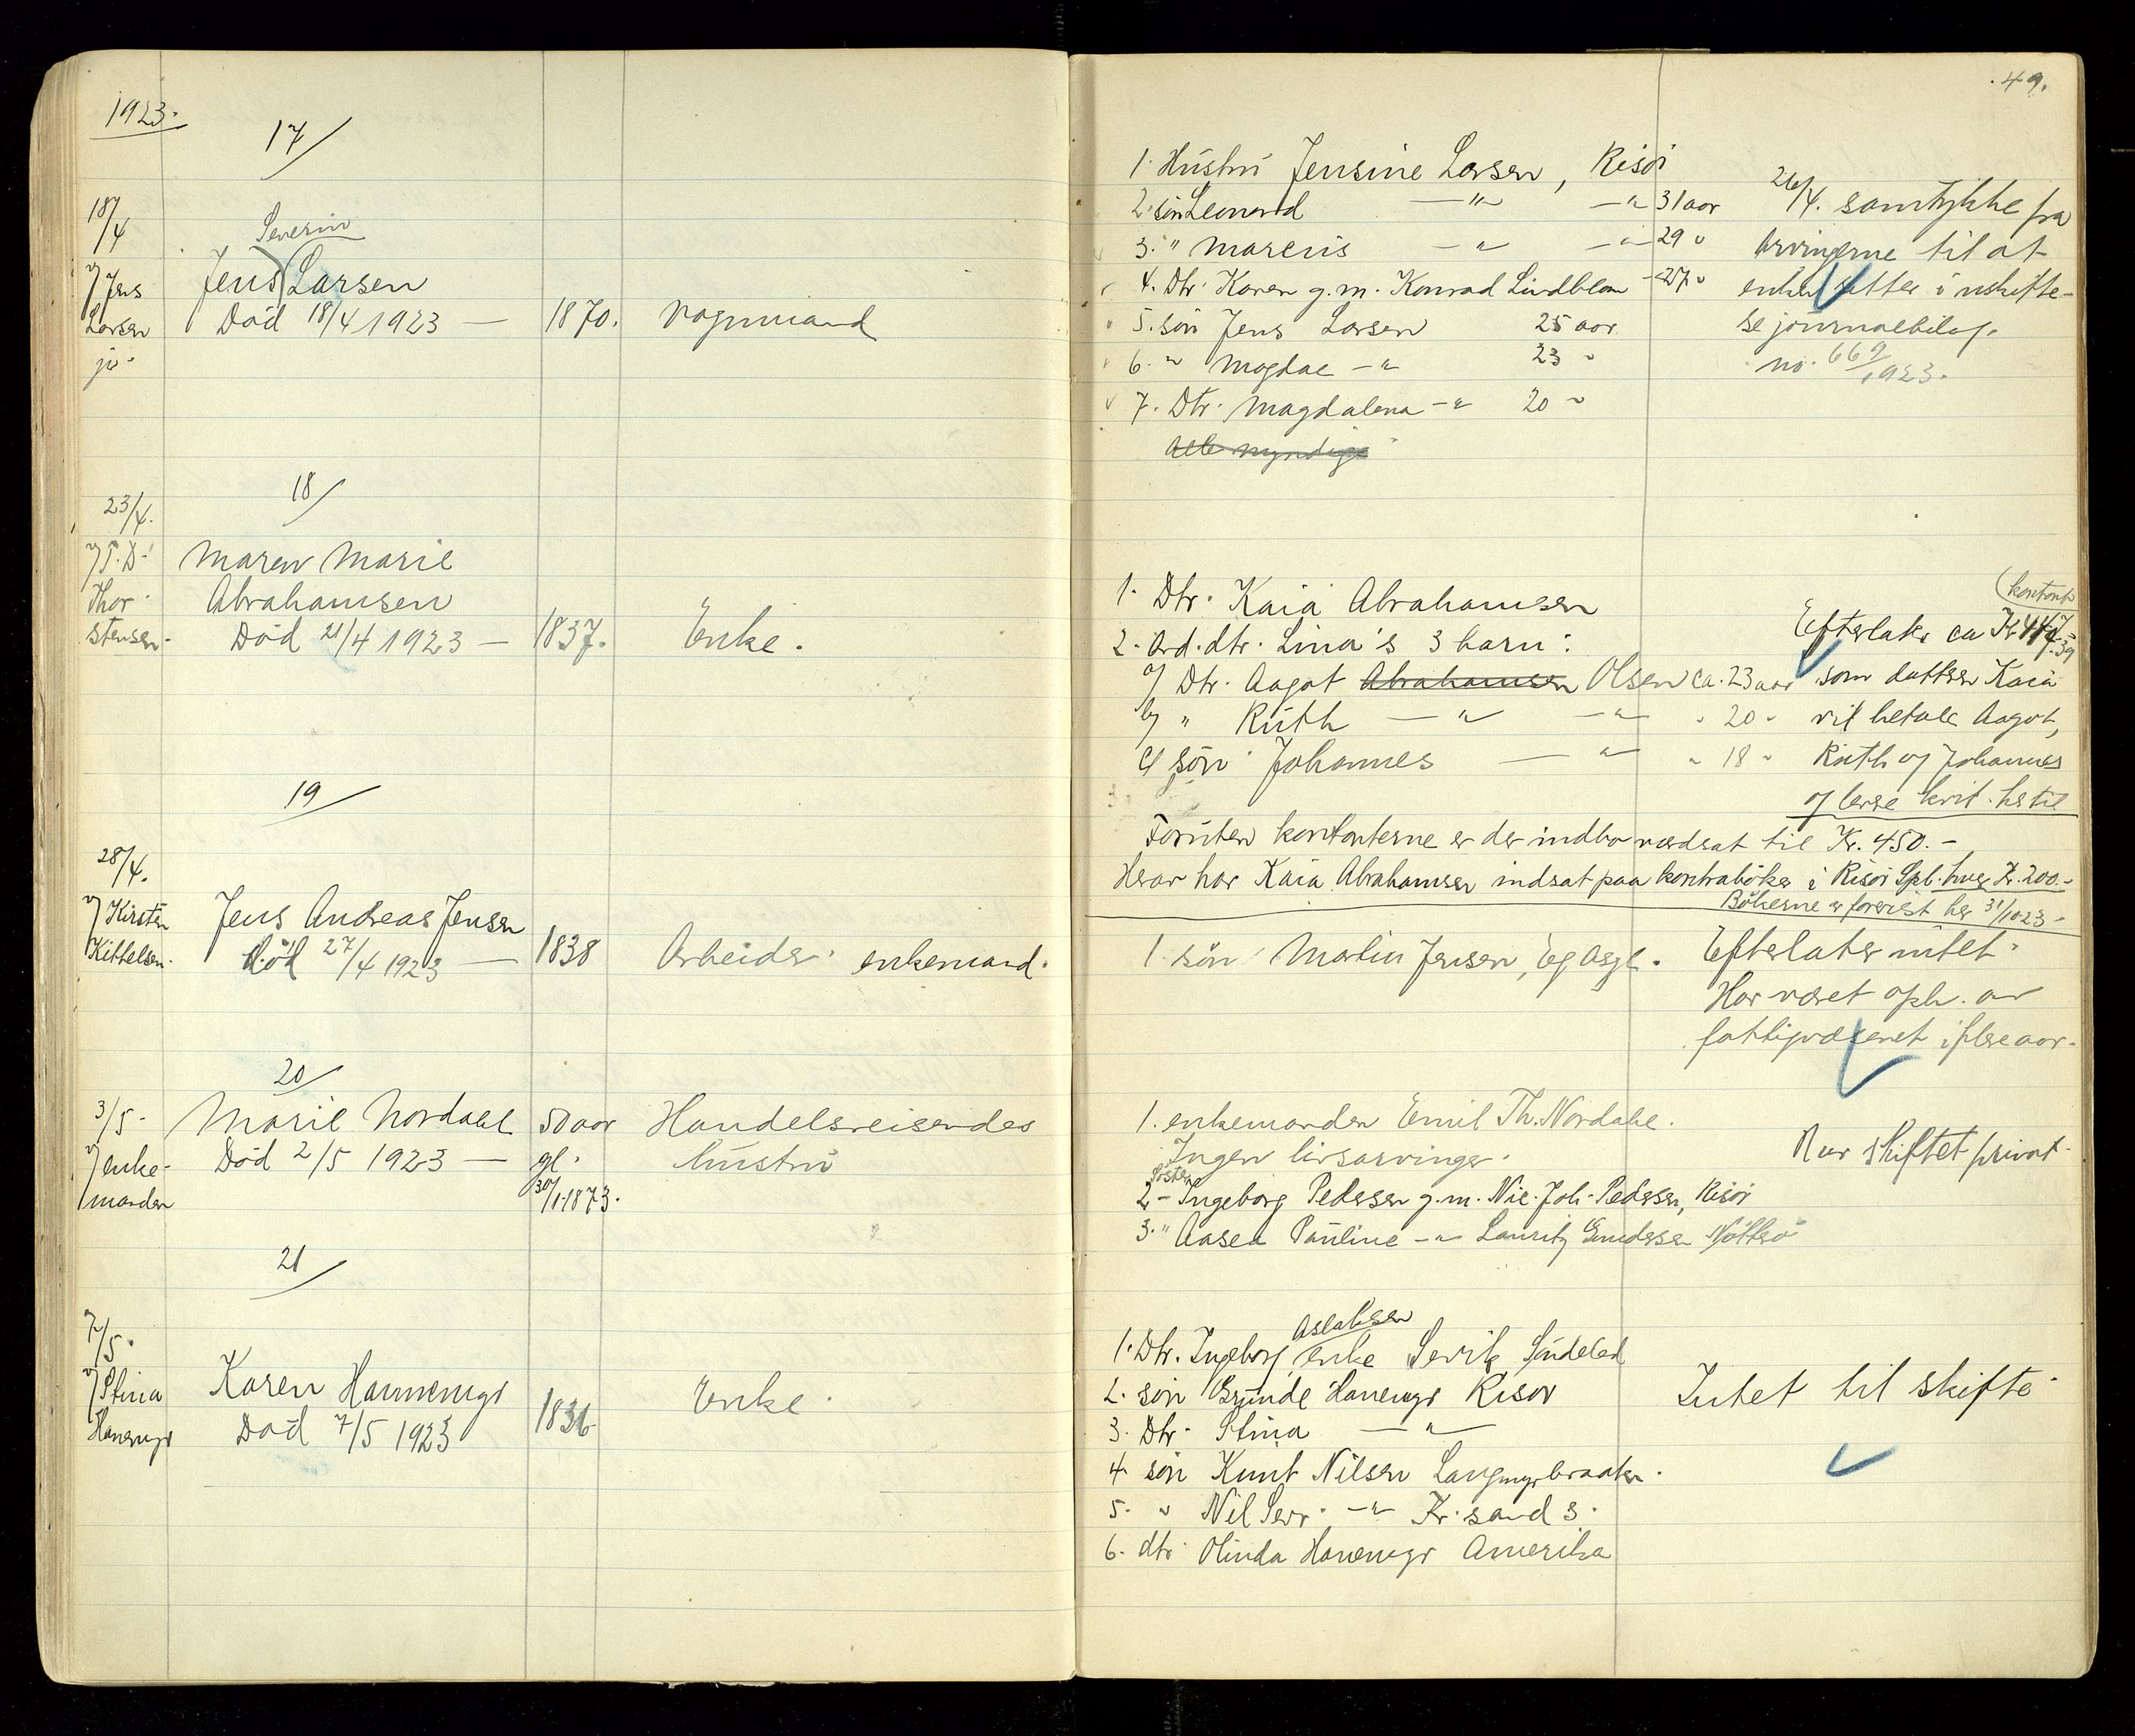 1923.
17/
18/4
v/ Jens
Larsen
jr.
Severin
Jens Larsen
Död 18/4 1923 — 1870. Vognmand
18/
23/4.
v/ T. D.
Thor-
stensen.
Maren Marie
Abrahamsen
Död 21/4 1923 — 1837. Enke.
19/
28/4.
v/ Kirsten
Kittelsen.
Jens Andreas Jensen
död 27/4 1923 — 1838 Arbeider enkemand.
20/
3/5.
v/ enke-
manden
Marie Nordahl 50 aar Handelsreisendes
Död 2/5 1923 — gl. hustru
30/1-1873.
21/
7/5.
v/ Stina
Hanemyr
Karen Hannemyr
Död 7/5 1923 1836 Enke.
49.
1. Hustru Jensine Larsen, Risör
2. sön Leonard —"— —"— 31 aar
3. " Marcus —"— —"— 29 "
4. Dtr. Karen g.m. Konrad Lindblom — 27 "
5. sön Jens Larsen 25 aar
6. " Magdal —"— 23 "
7. Dtr. Magdalena —"— 20 "
Alle myndige
26/4. samtykke fra
arvingerne til at
enken sitter i uskifte-
se journalbilag.
no. 669/1923.
1. Dtr. Kaia Abrahamsen
2. Avd. dtr. Lina's 3 barn:
a/ Dtr. Aagot Abrahamsen Olsen ca. 23 aar
b/ " Ruth —"— —"— " 20 "
c/ sön Johannes —"— " 18 "
(kontant)
Efterlater ca Kr.
som datteren Kaia
vil betale Aagot,
Ruth og Johannes
og levere kvit. hertil
Foruten kontanterne er der indbo værdsat til Kr. 450.-
Herav har Kaia Abrahamsen indsat paa kontraböker i Risör Spb. hver Kr. 200.-
Bökerne er forevist her 31/10 23.
1. sön Martin Jensen, Eg Asyl.
Efterlater intet.
Har været oph. av
fattigvæsenet i flere aar.
1. enkemanden Emil Th. Nordahl.
Ingen livsarvinger.
Söster
2 - Ingeborg Pedersen g.m. Nic. Joh. Pedersen, Risör
3. " Aasea Pauline —"— Lauritz Gundersen Nötterö
Har skiftet privat.
Aslaksen
1. Dtr. Ingeborg enke Sevik Söndeled
2. sön Grunde Hanemyr Risör
3. Dtr. Stina —"—
4. sön Knut Nilsen Langmyrbraaten.
5. " Nil Sev. —"— Kr.sand S.
6. dtr. Olinda Hanemyr Amerika
Intet til skifte.